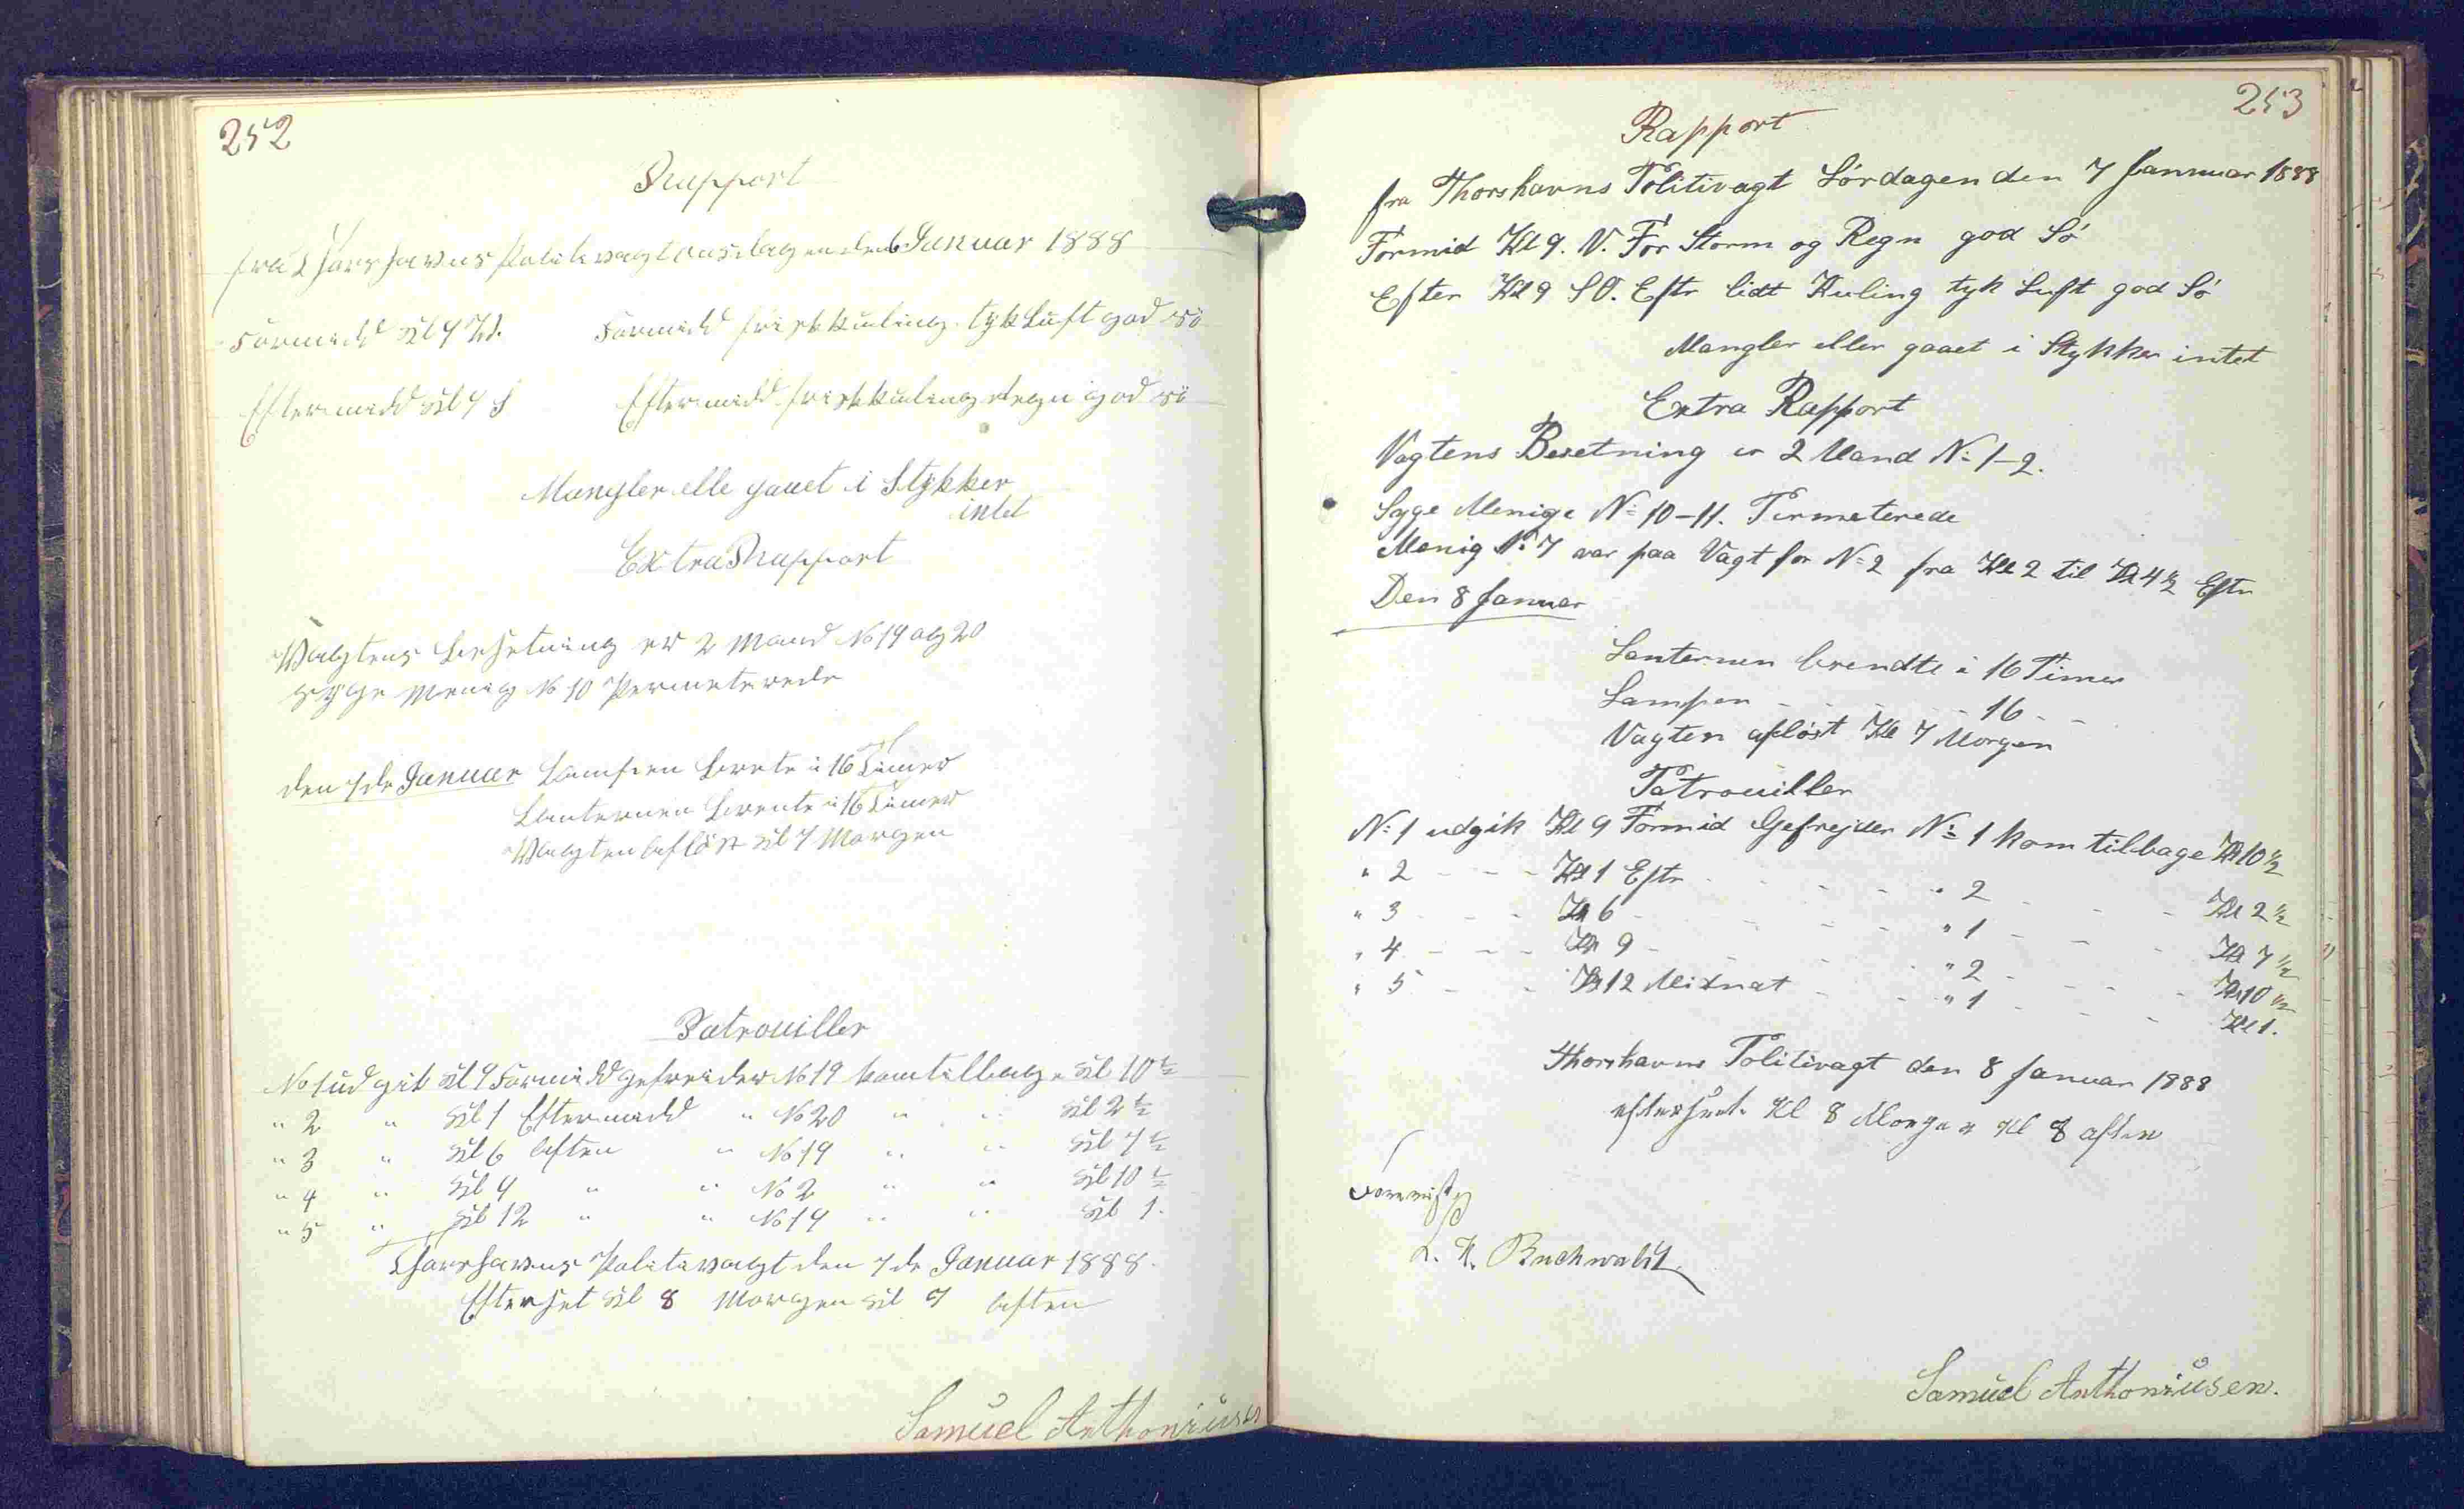 252
Rapport
fra Thorshavns Politivagt den 6 Januar 1888
Formidd Kl 9 Formidd frisk kuling tyk Luft god sö
Eftermidd Kl 9 S Eftermidd frisk kuling Regn god sö
Mangler elle gaaet i Stykker
intet
Extra Rapport
Vagtens besetning er 2 Mand No 19 og 20
syge Menig No 10 Permeterede
den 7de Januar Lampen brente i 16 Timer
Lanternen brente i 16 Timer
Vagten aflöst Kl 7 Morgen
Patrouiller
No 1 udgik Kl 9 Formidd gefreider No 19 kom tilbage Kl 10 1/2
" 2 " Kl 1 Eftermidd " No 20 " " Kl 2 1/2
" 3 " Kl 6 aften " No 19 " " Kl 7 1/2
" 4 " Kl 9 " " No 2 " " Kl 10 1/2
" 5 " Kl 12 " " No 19 " " Kl 1.
Thorshavns Politivagt den 7de Januar 1888.
Efterset Kl 8 Morgen Kl 9 aften
Samuel Anthoniusen
253
Rapport
fra Thorshavns Politivagt Lördagen den 7 Januar 1888
Formid Kl 9. V. For Storm og Regn god Sö
Efter Kl 9 SO. Eftr lidt Kuling tyk Luft god Sö
Mangler eller gaaet i Stykker intet
Extra Rapport
Vagtens Besetning er 2 Mand No 1-2.
Syge Menige No 10-11. Permeterede
Menig No 7 var paa Vagt for No 2 fra Kl 2 til Kl 4 1/2 Eftr
Den 8 Januar
Lanternen brendte i 16 Timer
Lampen - - - - - 16 - -
Vagten aflöst Kl 7 Morgen
Patrouiller
No 1 udgik Kl 9 Formid Gefrejder No 1 kom tilbage Kl 10 1/2
" 2 - - - Kl 1 Eftr - - - - " 2 - - - Kl 2 1/2
" 3 - - - Kl 6 - - - - " 1 - - - Kl 7 1/2
" 4 - - - Kl 9 - - - - " 2 - - - Kl 10 1/2
" 5 - - - Kl 12 Midnat - - - " 1 - - - Kl 1.
Thorshavns Politivagt den 8 Januar 1888
efterset Kl 8 Morgen Kl 8 aften
Buchwaldt
Samuel Anthoniusen.